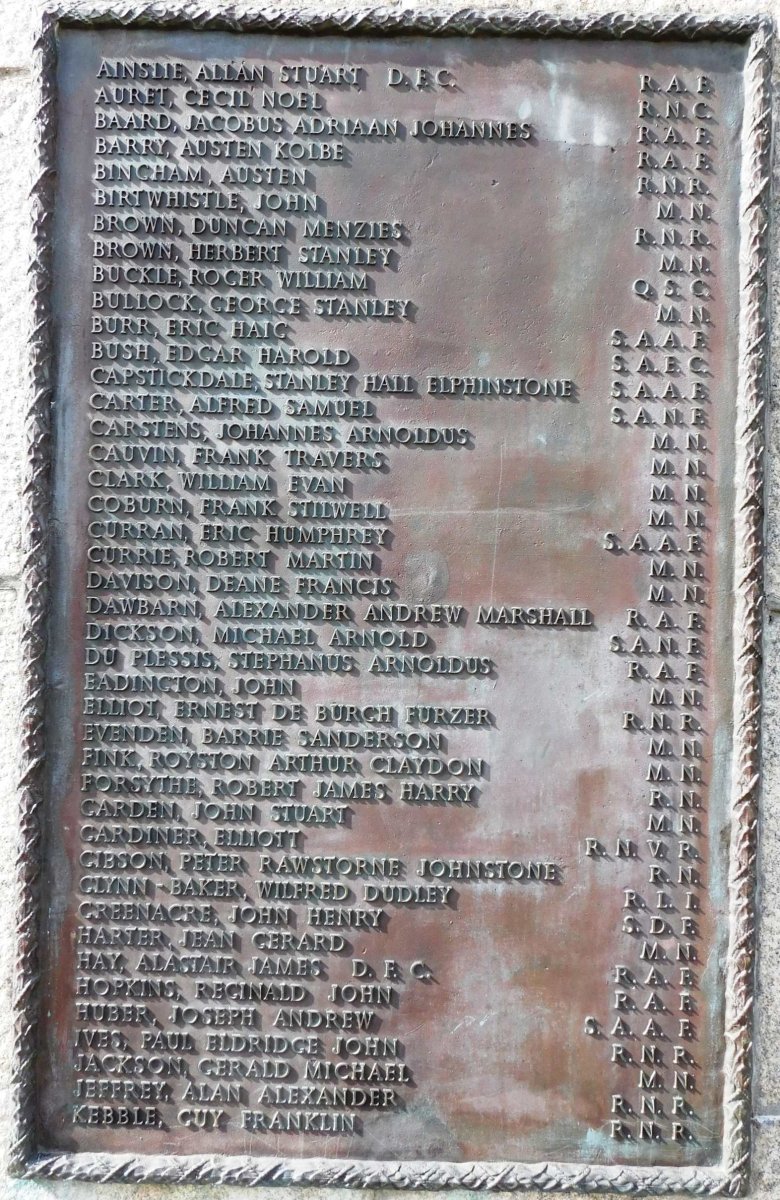 AINSLIE, ALLAN STUART D.F.C. R.A.F.
AURET, CECIL NOEL R.N.C.
BAARD, JACOBUS ADRIAAN JOHANNES R.A.F.
BARRY, AUSTEN KOLBE R.A.F.
BINGHAM, AUSTEN R.N.R.
BIRTWHISTLE, JOHN M.N.
BROWN, DUNCAN MENZIES R.N.R.
BROWN, HERBERT STANLEY M.N.
BUCKLE, ROGER WILLIAM Q.S.C.
BULLOCK, GEORGE STANLEY M.N.
BURR, ERIC HAIG S.A.A.F.
BUSH, EDGAR HAROLD S.A.E.C.
CAPSTICKDALE, STANLEY HALL ELPHINSTONE S.A.A.F.
CARTER, ALFRED SAMUEL S.A.N.F.
CARSTENS, JOHANNES ARNOLDUS M.N.
CAUVIN, FRANK TRAVERS M.N.
CLARK, WILLIAM EVAN M.N.
COBURN, FRANK STILWELL M.N.
CURRAN, ERIC HUMPHREY S.A.A.F.
CURRIE, ROBERT MARTIN M.N.
DAVISON, DEANE FRANCIS M.N.
DAWBARN, ALEXANDER ANDREW MARSHALL R.A.F.
DICKSON, MICHAEL ARNOLD S.A.N.F.
DU PLESSIS, STEPHANUS ARNOLDUS R.A.F.
EADINGTON, JOHN M.N.
ELLIOT, ERNEST DE BURGH FURZER R.N.R.
EVENDEN, BARRIE SANDERSON M.N.
FINK, ROYSTON ARTHUR CLAYDON M.N.
FORSYTHE, ROBERT JAMES HARRY R.N.
GARDEN, JOHN STUART M.N.
GARDINER, ELLIOTT R.N.V.R.
GIBSON, PETER RAWSTORNE JOHNSTONE R.N.
GLYNN-BAKER, WILFRED DUDLEY R.L.I.
GREENACRE, JOHN HENRY S.D.F.
HARTER, JEAN GERARD M.N.
HAY, ALASTAIR JAMES D.F.C. R.A.F.
HOPKINS, REGINALD JOHN R.A.F.
HUBER, JOSEPH ANDREW S.A.A.F.
IVES, PAUL ELDRIDGE JOHN R.N.R.
JACKSON, GERALD MICHAEL M.N.
JEFFREY, ALAN ALEXANDER R.N.R.
KEBBLE, GUY FRANKLIN R.N.R.